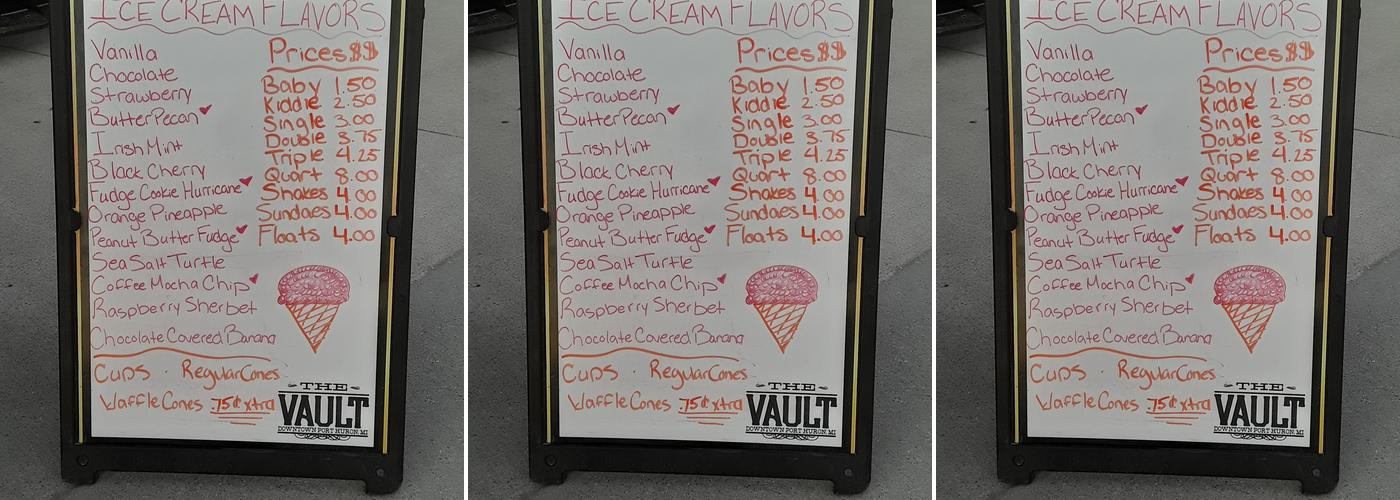 ICE CREAM FLAVORS
Vanilla
Chocolate
Strawberry
Butter Pecan
Irish Mint
Black Cherry
Fudge Cookie Hurricane
Orange Pineapple
Peanut Butter Fudge
Sea Salt Turtle
Coffee Mocha Chip
Raspberry Sherbet
Chocolate Covered Banana
Prices $$
Baby 1.50
Kiddie 2.50
Single 3.00
Double 3.75
Triple 4.25
Quart 8.00
Shakes 4.00
Sundaes 4.00
Floats 4.00
Cups · Regular Cones
Waffle Cones .75¢ xtra
THE
VAULT
DOWNTOWN PORT HURON, MI
ICE CREAM FLAVORS
Vanilla
Chocolate
Strawberry
Butter Pecan
Irish Mint
Black Cherry
Fudge Cookie Hurricane
Orange Pineapple
Peanut Butter Fudge
Sea Salt Turtle
Coffee Mocha Chip
Raspberry Sherbet
Chocolate Covered Banana
Prices $$
Baby 1.50
Kiddie 2.50
Single 3.00
Double 3.75
Triple 4.25
Quart 8.00
Shakes 4.00
Sundaes 4.00
Floats 4.00
Cups · Regular Cones
Waffle Cones .75¢ xtra
THE
VAULT
DOWNTOWN PORT HURON, MI
ICE CREAM FLAVORS
Vanilla
Chocolate
Strawberry
Butter Pecan
Irish Mint
Black Cherry
Fudge Cookie Hurricane
Orange Pineapple
Peanut Butter Fudge
Sea Salt Turtle
Coffee Mocha Chip
Raspberry Sherbet
Chocolate Covered Banana
Prices $$
Baby 1.50
Kiddie 2.50
Single 3.00
Double 3.75
Triple 4.25
Quart 8.00
Shakes 4.00
Sundaes 4.00
Floats 4.00
Cups · Regular Cones
Waffle Cones .75¢ xtra
THE
VAULT
DOWNTOWN PORT HURON, MI